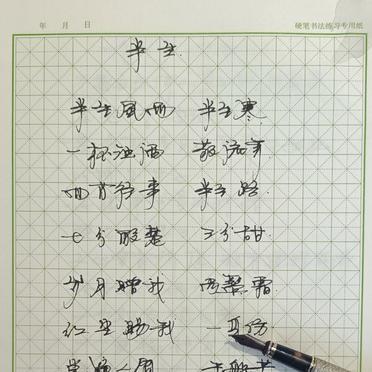 年 月 日
硬笔书法练习专用纸
半生
半生风雨 半生寒
一杯浊酒 敬流年
回首往事 半生路
七分酸楚 三分甜
岁月赠我 两鬓霜
红尘赐我 一身伤
尝遍人间